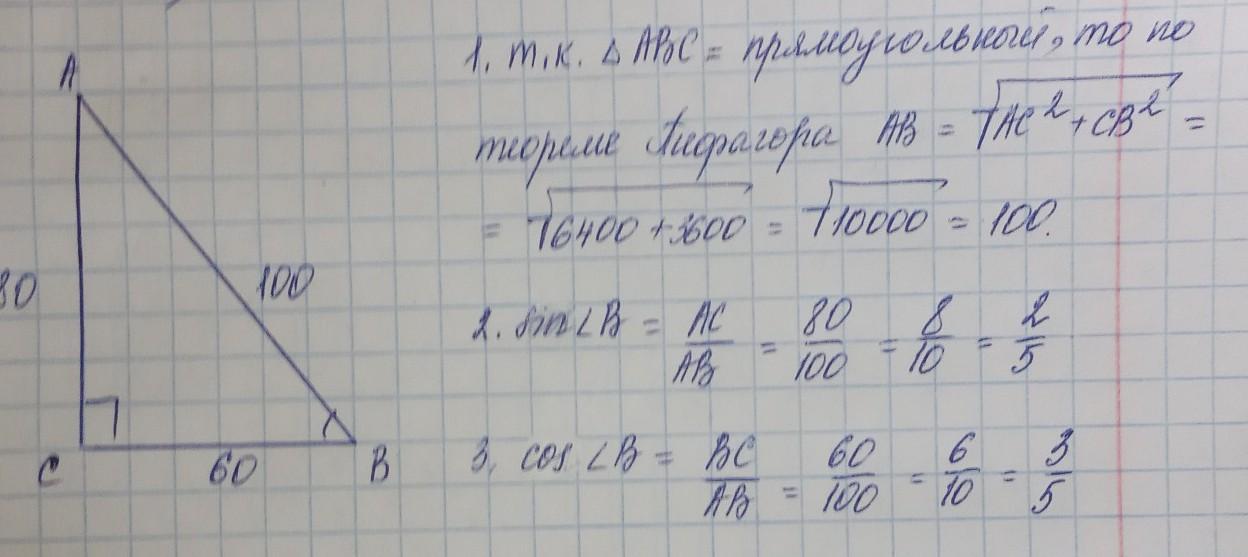 A
80
100
C
60
B
1. т.к. △ ABC = прямоугольный, то по
теореме Пифагора AB = √AC² + CB² =
= √6400 + 3600 = √10000 = 100.
2. sin∠B = AC/AB = 80/100 = 8/10 = 2/5
3. cos ∠B = BC/AB = 60/100 = 6/10 = 3/5